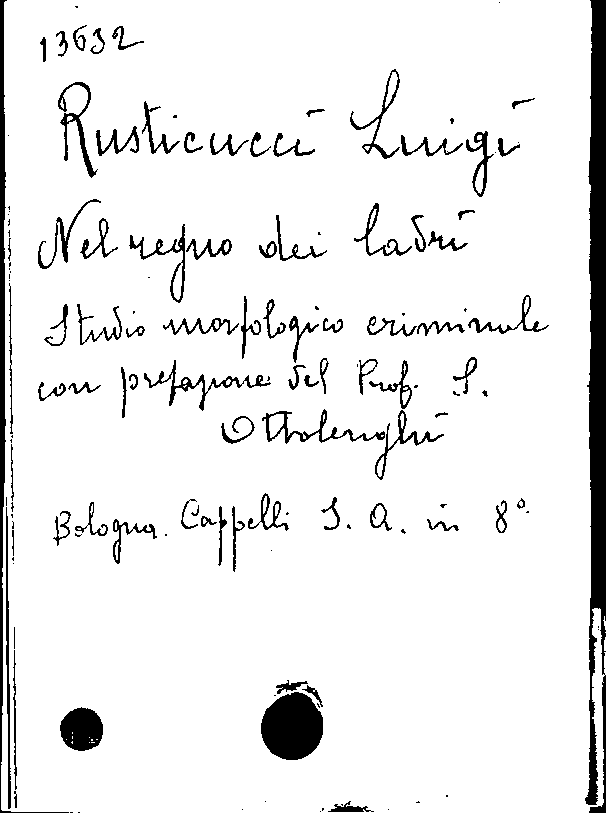 13632
Rusticucci Luigi
Nel regno dei ladri
Studio morfologico criminale
con prefazione del Prof. S.
Ottolenghi
Bologna. Cappelli S. A. in 8°.